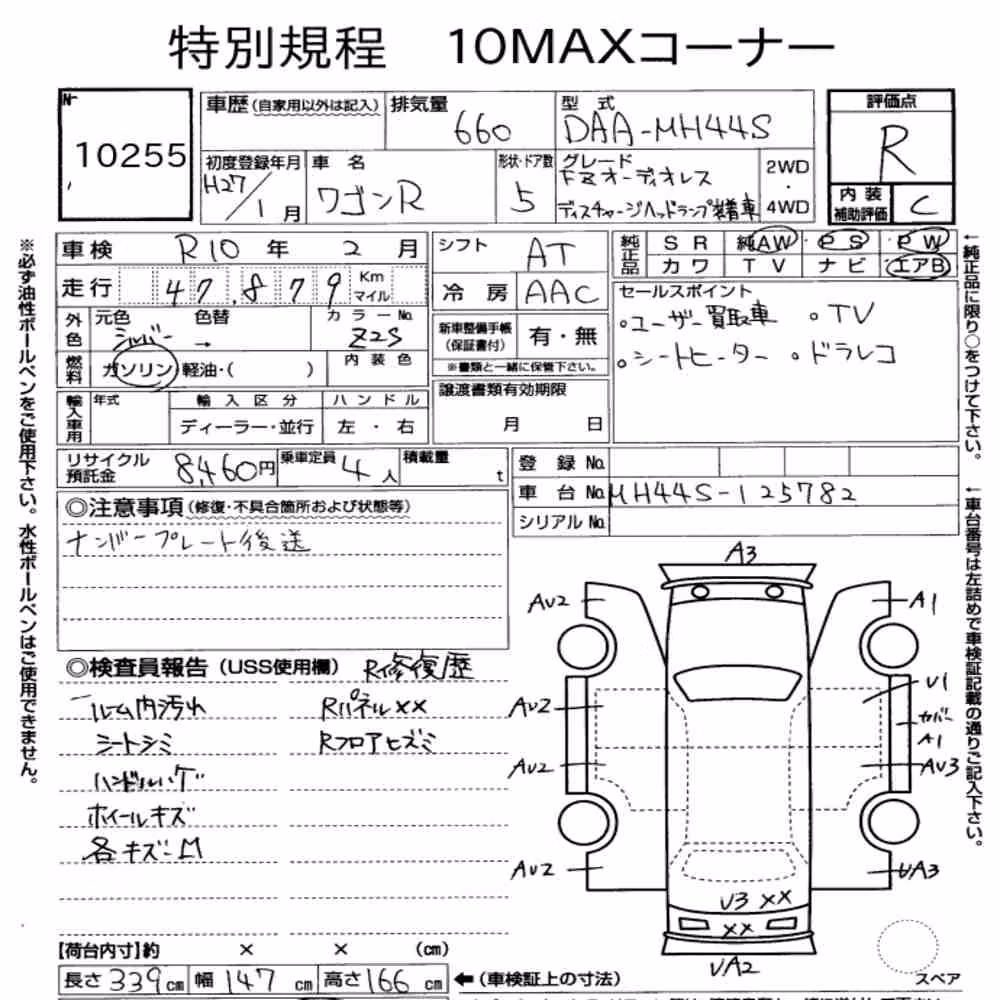 特別規程 10MAXコーナー
No. 10255
車歴 (自家用以外は記入) 排気量 660 型式 DAA-MH44S
評価点 R
初度登録年月 H27/1月 車名 ワゴンR 形状・ドア数 5 グレード FZオーディオレス ディスチャージヘッドランプ装着車 2WD・4WD
内装補助評価 C
車検 R10年 2月 シフト AT
走行 47,879 Km マイル 冷房 AAC
純正品 SR 純AW PS PW
カワ TV ナビ エアB
外色 元色 シルバー 色替 → カラーNo. Z2S
新車整備手帳(保証書付) 有・無
※書類と一緒に保管下さい。
セールスポイント
○ユーザー買取車 ○TV
○シートヒーター ○ドラレコ
燃料 ガソリン・軽油・( ) 内装色
譲渡書類有効期限 月 日
輸入車用 年式 輸入区分 ディーラー・並行 ハンドル 左・右
リサイクル預託金 8,460円 乗車定員 4人 積載量 t
登録No.
車台No. MH44S-125782
シリアルNo.
◎注意事項(修復・不具合箇所および状態等)
ナンバープレート後送
◎検査員報告(USS使用欄) R修復歴
ルーム内汚れ Rパネル××
シートシミ Rフロアヒズミ
ハンドルハゲ
ホイールキズ
各キズ凹
A3
AU2 A1
AU2 U1
カバー
A1
AU2 AU3
AU2 UA3
U3 ××
××
UA2
スペア
【荷台内寸】約 × × (cm)
長さ 339cm 幅 147cm 高さ 166cm ←(車検証上の寸法)
※必ず油性ボールペンをご使用下さい。水性ボールペンはご使用できません。
←純正品に限り○をつけて下さい。
←車台番号は左詰めで車検証記載の通りご記入下さい。